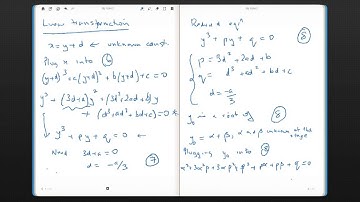 Linear transformation
x = y + d ← unknown const.
Plug x into ⑥
(y+d)³ + a(y+d)² + b(y+d) + c = 0
y³ + (3d+a)y² + (3d²+2ad+b)y
+ (d³+ad²+bd+c) = 0
y³ + py + q = 0 ←
Need 3d+a = 0
d = -a/3 ⑦
Reduced eqⁿ
y³ + py + q = 0 ⑧
p = 3d² + 2ad + b
q = d³ + ad² + bd + c
d = -a/3
y₀ is a root of ⑧
y₀ = α + β, α and β unknown at this stage
Plugging y₀ into ⑧
α³ + 3α²β + 3αβ² + β³ + pα + pβ + q = 0